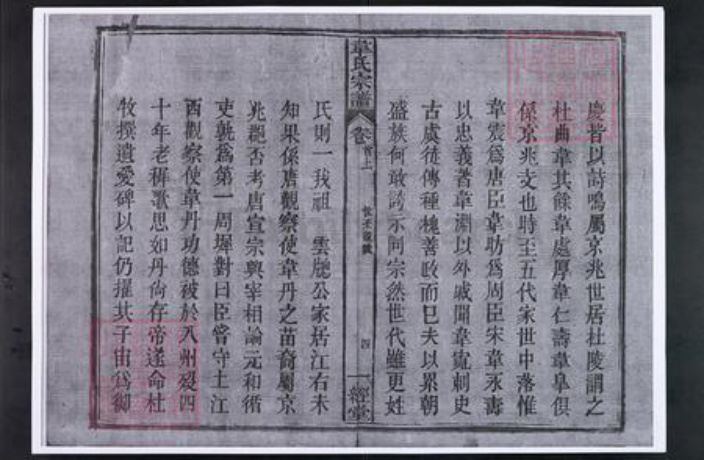 慶皆以詩鳴屬京兆世居杜陵謂之
杜曲韋其餘韋處厚韋仁壽韋臯俱
係京兆支也時至五代家世中落惟
韋震爲唐臣韋昉爲周臣宋韋永壽
以忠義著韋淵以外戚聞韋寬刺史
古虞徒傳種槐善政而已夫以累朝
盛族何敢誇示同宗然世代雖更姓
韋氏宗譜
卷首上
四
一經堂
氏則一我祖 雲廳公家居江右未
知果係唐觀察使韋丹之苗裔屬京
兆郡否考唐宣宗與宰相論元和循
吏孰爲第一周墀對曰臣嘗守土江
西觀察使韋丹功德被於八州歿四
十年老稺歌思如丹尚存帝遂命杜
牧撰遺愛碑以記仍擢其子宙爲御